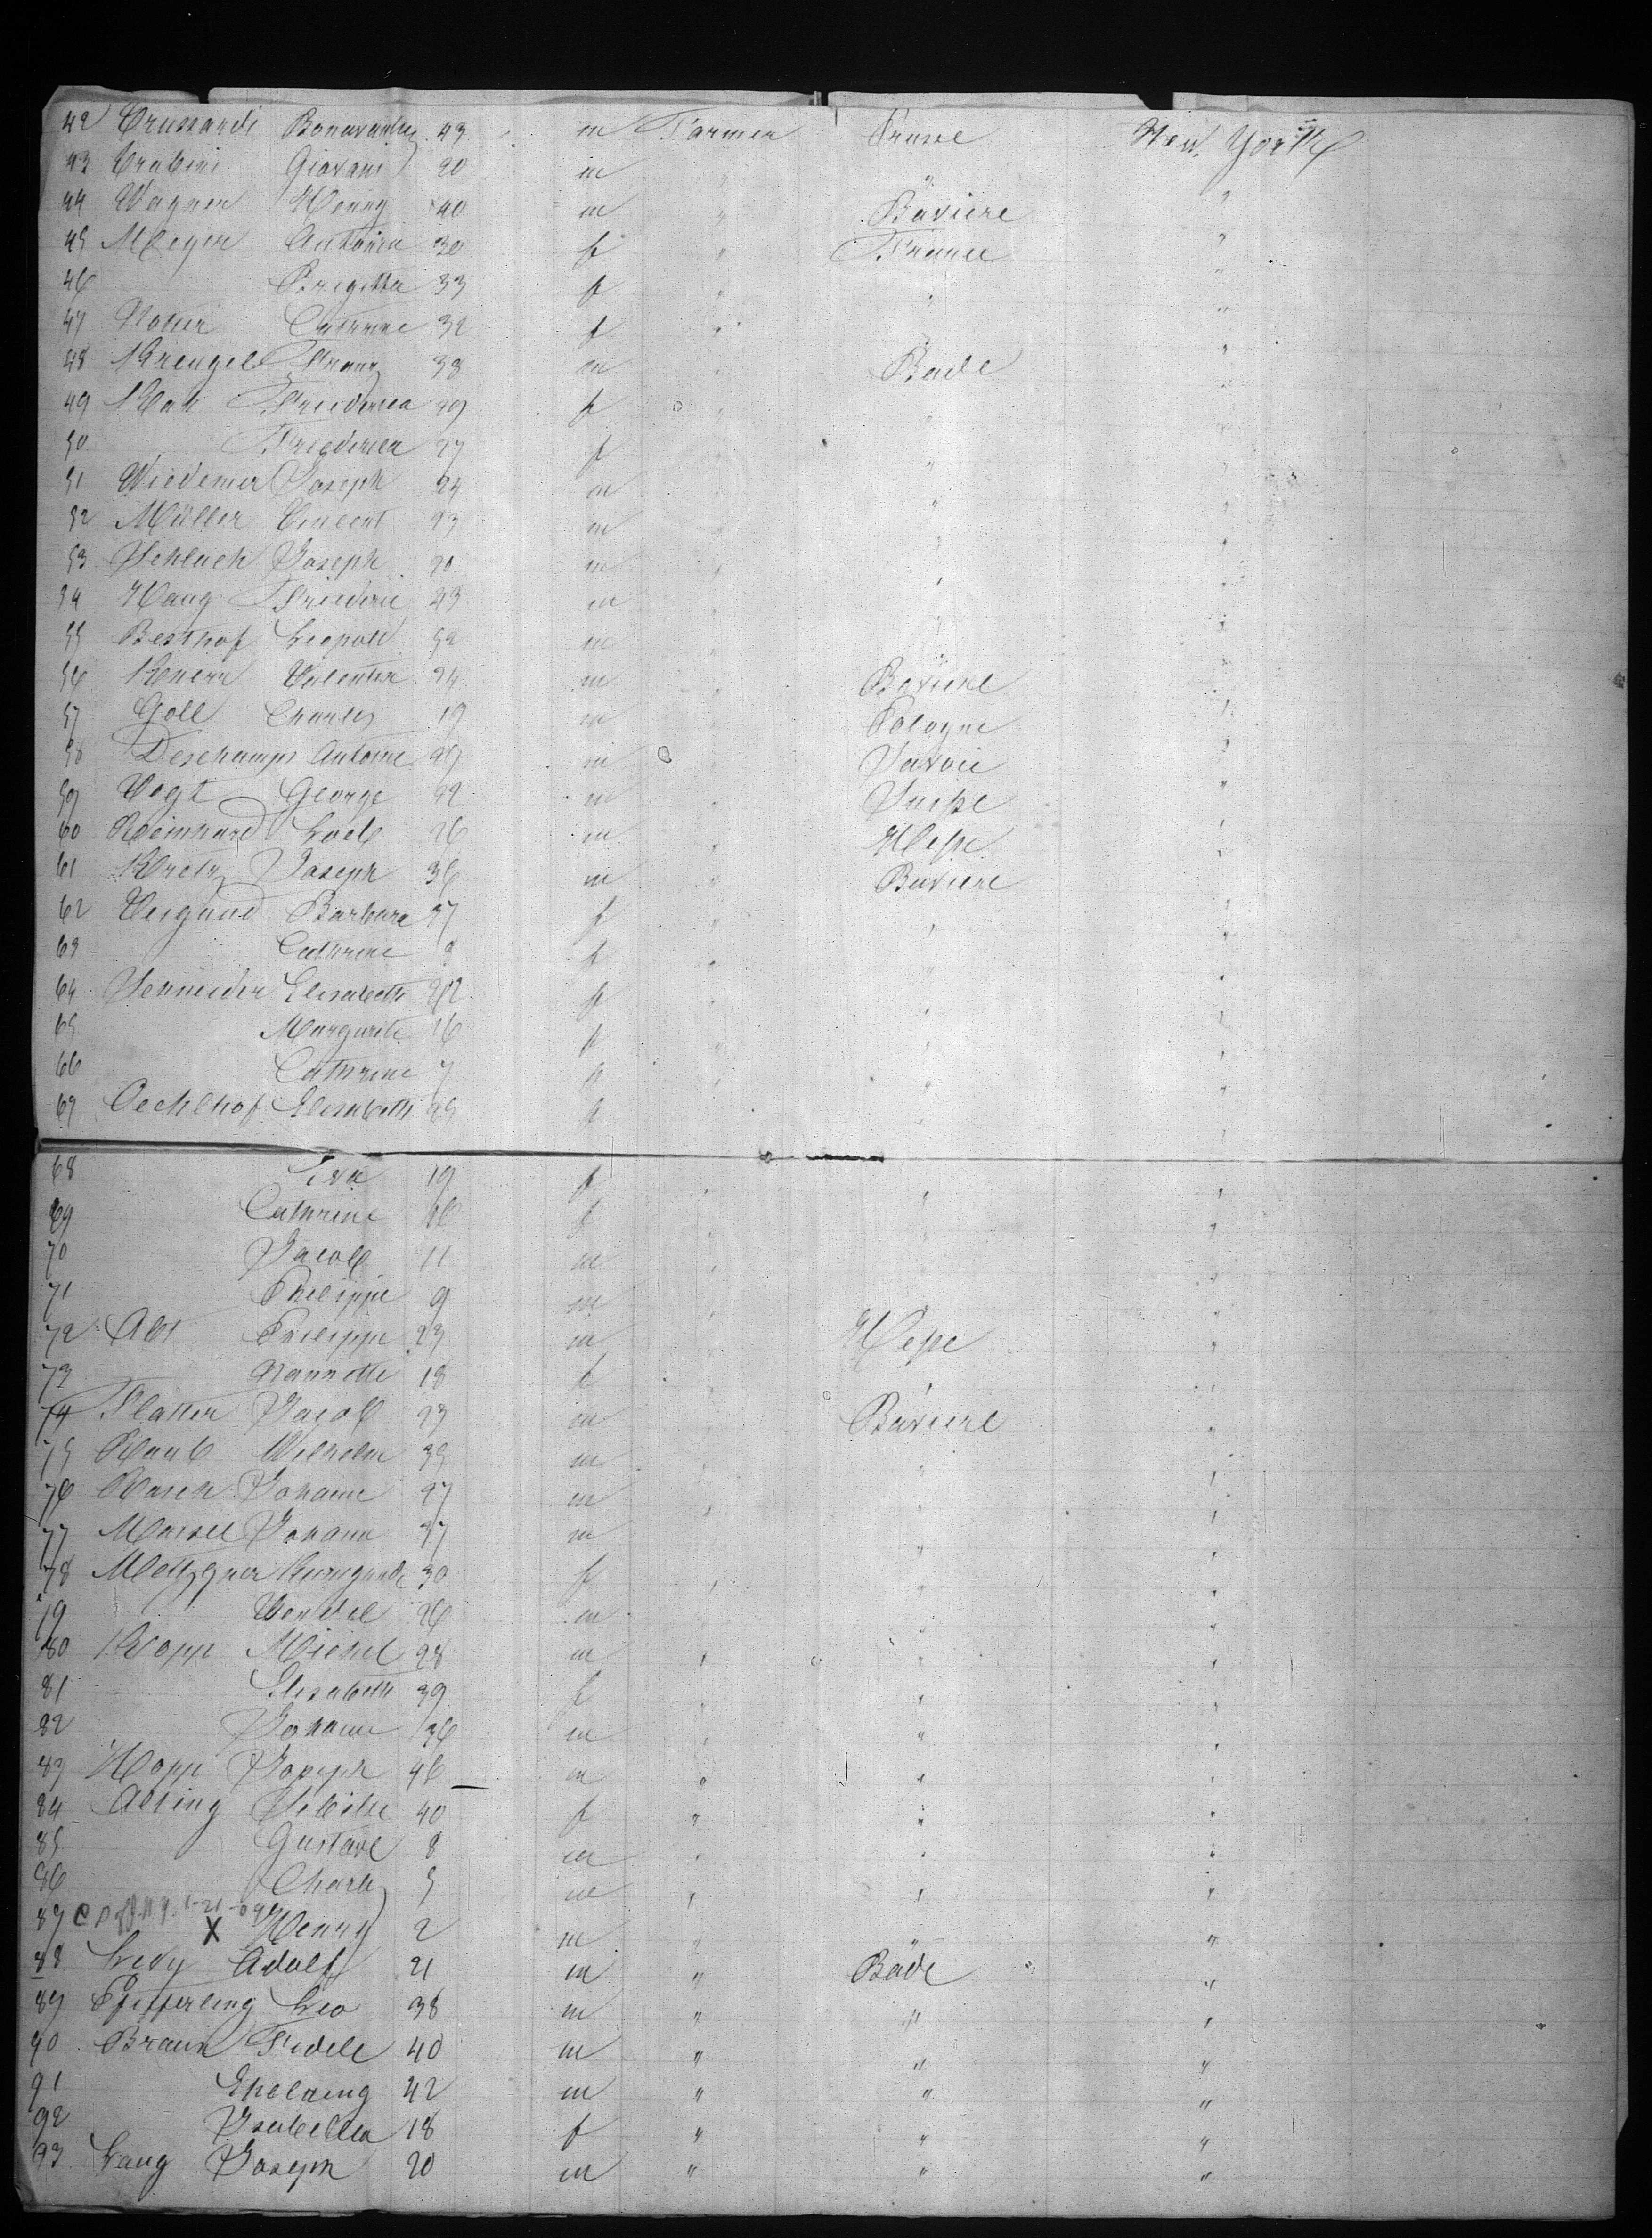 42 Crussardi 43 m Farmer Prusse New York
43 Giovani 20 m " " "
44 Wagner Henry 40 m " Baviere "
45 Meyer Antonia 30 f " France "
46 Brigitta 33 f " " "
47 Cathrine 32 f " " "
48 Krengel Franz 38 m " Bade "
49 Friederica 29 f " " "
50 Friederica 27 f " "
51 Wiedemer Joseph 24 m " " "
52 Müller Vincent 23 m " " "
53 Schlach Joseph 20 m " " "
54 Haug Friederic 43 m " " "
55 Besthof Leopold 52 m " " "
56 Valentin 24 m " Baviere "
57 Goll Charles 19 m " Pologne "
58 Deschamps Antoine 29 m " Savoie "
59 Vogt George 52 m " Suisse "
60 Reinhard 26 m " Hesse "
61 Kretz Joseph 36 m " Baviere "
62 Barbara 37 f " " "
63 Cathrine f " " "
64 Schneider Elisabeth 22 f " " "
65 Margarete 16 f " " "
66 Cathrine 7 f " " "
67 Oechlhof Elisabeth 25 f "
68 Eva 19 f " " "
69 Cathrine 16 f " " "
70 Jacob 11 m " "
71 Philippe 9 m " "
72 Abt Philippe 23 m " Hesse "
73 Nannette 18 f " " "
74 Flatter Jacob 23 m Baviere "
75 Raub Wilhelm 35 m " " "
76 Johann 27 m " " "
77 Johann 37 m " "
78 Metzgner Kunigunde 30 f " " "
79 Wendel 26 m " "
80 Klopp Michel 28 m " " "
81 Elisabeth 39 f " " "
82 Johann 36 m " " "
83 Hopp Joseph 46 m " " "
84 40 f " " "
85 Gustave 8 m " " "
86 Charles 5 m " " "
87 X Henry 2 m " " "
88 Levy Adolf 21 m " Bade "
89 Leo 38 m " " "
90 Braun Fidele 40 m " " "
91 42 m " " "
92 Isabella 18 f " " "
93 Lang Joseph 20 m " " "